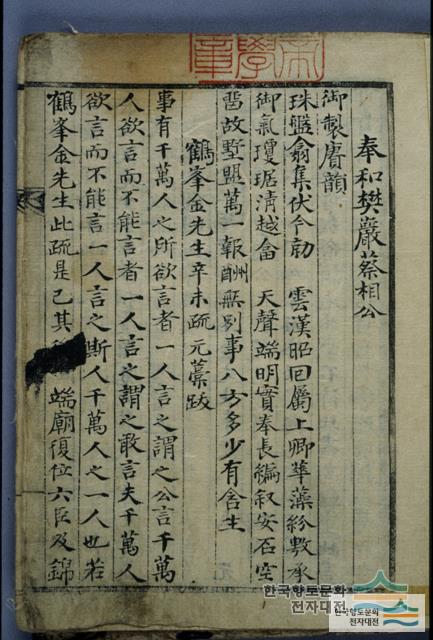 奉和樊巖蔡相公
御製賡韻
珠盤翕集伏今勛 雲漢昭回屬上卿華藻紛敷承
御氣瓊琚淸越畣 天聲端明實奉長編叙安石空
酱故墅盟萬一報酬無别事八方多少有含生
鶴峯金先生辛未疏元藁跋
事有千萬人之所欲言者一人言之謂之公言千萬
人欲言而不能言者一人言之謂之敢言夫千萬人
欲言而不能言一人言之斯人千萬人之一人也若
鶴峯金先生此疏是已其 端廟復位六臣及錦
帝學章
한국향토문화
전자대전
한국향토문화
전자대전